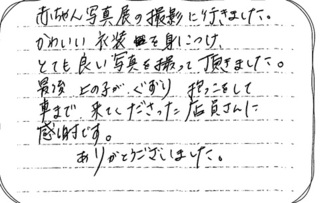 赤ちゃん写真展の撮影に行きました。
かわいい衣装を身につけ、
とても良い写真を撮って頂きました。
最後 上の子が、ぐずり 抱っこをして
車まで、来てくださった店員さんに
感謝です。
ありがとうございました。